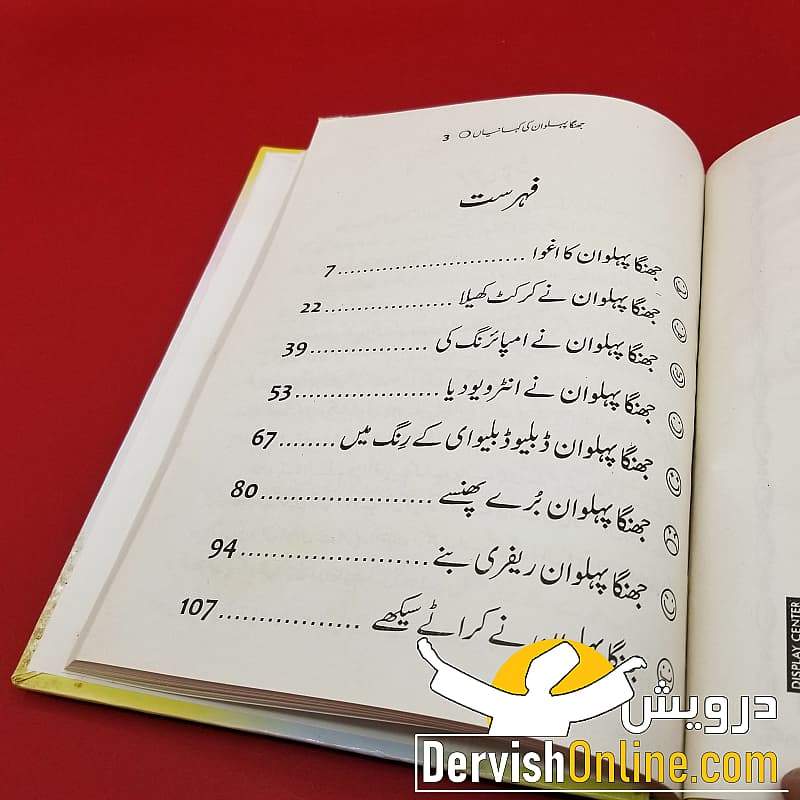 جھنگا پہلوان کی کہانیاں ○ 3
فہرست
جھنگا پہلوان کا اغوا ........................ 7
جھنگا پہلوان نے کرکٹ کھیلا ................ 22
جھنگا پہلوان نے امپائرنگ کی ............... 39
جھنگا پہلوان نے انٹرویو دیا .................. 53
جھنگا پہلوان ڈبلیو ڈبلیو ای کے رِنگ میں ....... 67
جھنگا پہلوان بُرے پھنسے ..................... 80
جھنگا پہلوان ریفری بنے ....................... 94
جھنگا پہلوان نے کراٹے سیکھے ................. 107
DISPLAY CENTER
درویش
DervishOnline.com